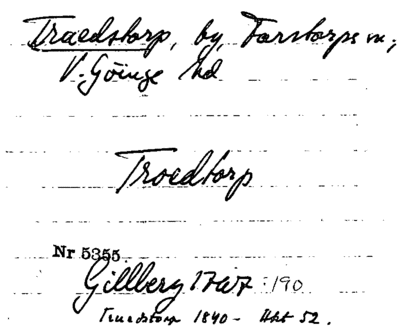 Traedstorp, by, Farstorps sn,
V. Göinge hd
Troedtorp
Nr 5355.
Gillberg 1767 :190
1840 - Hkt 52.